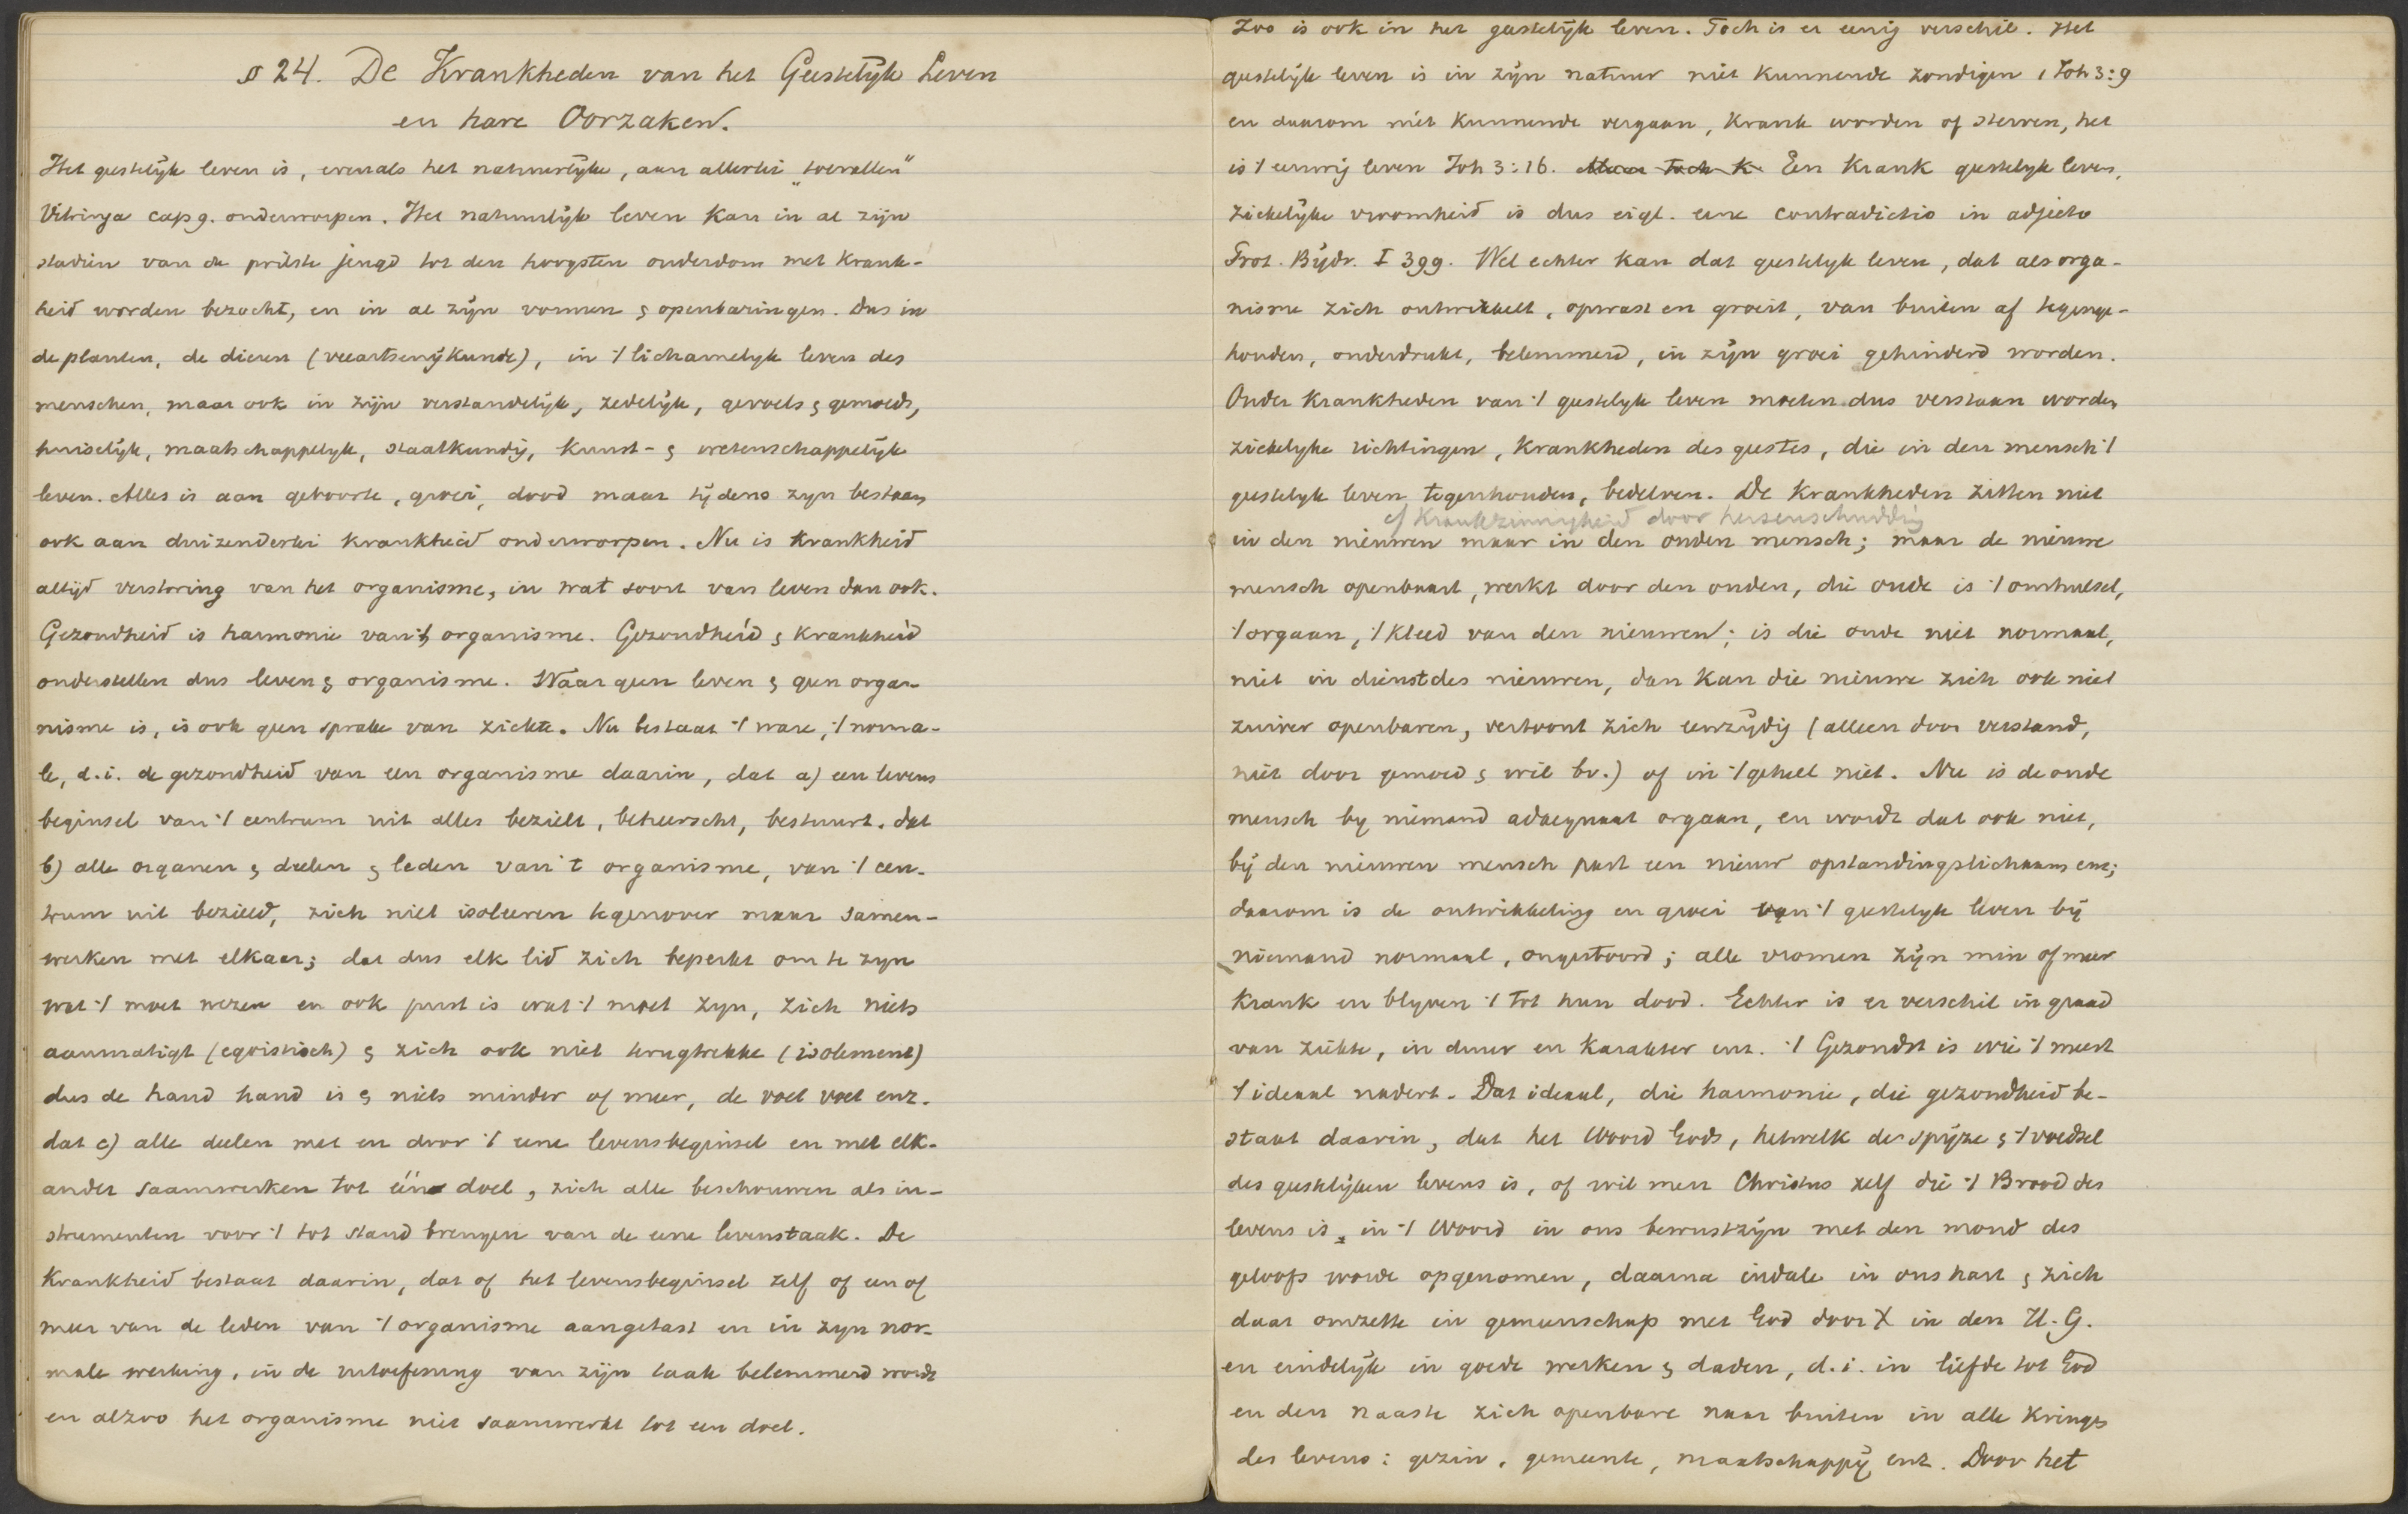 § 24. De Krankheden van het Geestelijk Leven
en hare Oorzaken.
Het geestelijk leven is, evenals het natuurlijke, aan allerlei "toevallen"
Vitringa cap 9. onderworpen. Het natuurlijk leven kan in al zijn
stadiën van de prilste jeugd tot den hoogsten ouderdom met krank-
heid worden bezocht, en in al zijn vormen & openbaringen. Dus in
de planten, de dieren (veeartsenijkunde), in 't lichamelijk leven des
menschen, maar ook in zijn verstandelijk, zedelijk, gevoels & gemoeds,
huiselijk, maatschappelijk, staatkundig, kunst- & wetenschappelijk
leven. Alles is aan geboorte, groei, dood maar tijdens zijn bestaan
ook aan duizenderlei krankheid onderworpen. Nu is krankheid
altijd verstoring van het organisme, in wat soort van leven dan ook.
Gezondheid is harmonie van 't organisme. Gezondheid & krankheid
onderstellen dus leven & organisme. Waar geen leven & geen orga-
nisme is, is ook geen sprake van ziekte. Nu bestaat 't ware, 't norma-
le, d.i. de gezondheid van een organisme daarin, dat a) een levens
beginsel van 't centrum uit alles bezielt, beheerscht, bestuurt. dat
b) alle organen & deelen & leden van 't organisme, van 't cen-
trum uit bezield, zich niet isoleeren tegenover maar samen-
werken met elkaar; dat dus elk lid zich beperkt om te zijn
wat 't moet wezen en ook juist is wat 't moet zijn, zich niets
aanmatigt (egoistisch) & zich ook niet terugtrekke (isolement)
dus de hand hand is & niets minder of meer, de voet voet enz.
dat c) alle deelen met en door 't eene levensbeginsel en met elk-
ander saamwerken tot één doel, zich alle beschouwen als in-
strumenten voor 't tot stand brengen van de eene levenstaak. De
Krankheid bestaat daarin, dat of het levensbeginsel zelf of een of
meer van de leden van 't organisme aangetast en in zijn nor-
male werking, in de uitoefening van zijn taak belemmerd wordt
en alzoo het organisme niet saamwerkt tot een doel.
Zoo is ook in het geestelijk leven. Toch is er eenig verschil. Het
geestelijk leven is in zijn natuur niet kunnende zondigen 1 Joh 3:9
en daarom niet kunnende vergaan, krank worden of sterven, het
is 't eeuwig leven Joh 3:16. Maar toch k Een krank geestelijk leven,
ziekelijke vroomheid is dus eigl. eene contradictio in adjecto
Frot. Bijdr. I 399. Wel echter kan dat geestelijk leven, dat als orga-
nisme zich ontwikkelt, opwast en groeit, van buiten af tegenge-
houden, onderdrukt, belemmerd, in zijn groei gehinderd worden.
Onder krankheden van 't geestelijk leven moeten dus verstaan worden
ziekelijke richtingen, krankheden des geestes, die in den mensch 't
geestelijk leven tegenhouden, bederven. De krankheden zitten niet
cf krankzinnigheid door hersenschudding
in den nieuwen maar in den ouden mensch; maar de nieuwe
mensch openbaart, werkt door den ouden, die oude is 't omhulsel,
't orgaan, 't kleed van den nieuwen; is die oude niet normaal,
niet in dienst des nieuwen, dan kan die nieuwe zich ook niet
zuiver openbaren, vertoont zich eenzijdig (alleen door verstand,
niet door gemoed & wil bv.) of in 't geheel niet. Nu is de oude
mensch bij niemand adaequaat orgaan, en wordt dat ook niet,
bij den nieuwen mensch past een nieuw opstandingslichaam enz;
daarom is de ontwikkeling en groei van 't geestelijk leven bij
niemand normaal, ongestoord; alle vromen zijn min of meer
krank en blijven 't tot hun dood. Echter is er verschil in graad
van ziekte, in duur en karakter enz. 't Gezondst is wie 't meest
't ideaal nadert. Dat ideaal, die harmonie, die gezondheid be-
staat daarin, dat het Woord Gods, hetwelk de spijze & 't voedsel
des geestelijken levens is, of wil men Christus zelf die 't Brood des
levens is, in 't Woord in ons bewustzijn met den mond des
geloofs worde opgenomen, daarna indale in ons hart & zich
daar omzette in gemeenschap met God door X in den H. G.
en eindelijk in goede werken & daden, d.i. in liefde tot God
en den naaste zich openbare naar buiten in alle kringen
des levens: gezin, gemeente, maatschappij enz. Door het